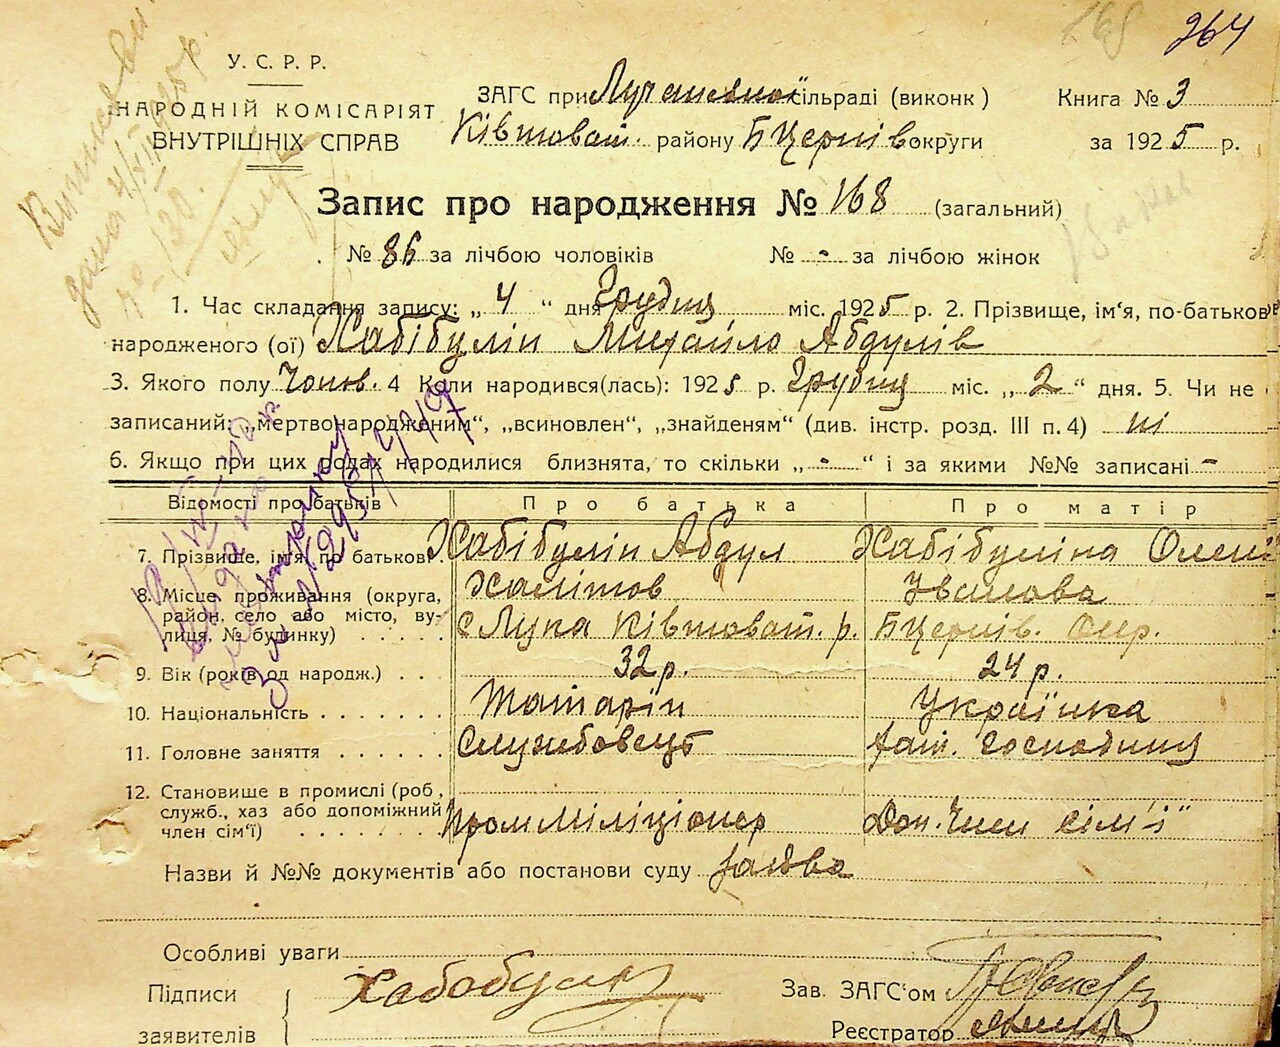 264
У. С. Р. Р.
НАРОДНІЙ КОМІСАРІЯТ
ВНУТРІШНІХ СПРАВ
ЗАГС при Лучанської сільраді (виконк)
Ківшоват. району БЦерківокруги
Книга № 3
за 1925 р.
Запис про народження № 168 (загальний)
№ 86 за лічбою чоловіків № - за лічбою жінок
1. Час складання запису: „ 4 “ дня Грудня міс. 1925 р. 2. Прізвище, ім'я, по-батькові
народженого (ої) Хабібулін Михайло Абдулів
3. Якого полу Чолов. 4 Коли народився(лась): 1925 р. Грудня міс. „ 2 “ дня. 5. Чи не
записаний: „мертвонародженим“, „всиновлен“, „знайденям“ (див. інстр. розд. III п. 4) ні
6. Якщо при цих родах народилися близнята, то скільки „ - “ і за якими №№ записані -
Відомості про батьків Про батька Про матір
7. Прізвище, ім'я, по батькові. Хабібулін Абдул Хабібуліна Олена
Халітов
8. Місце проживання (округа, район, село або місто, вулиця, № будинку) с Лука Ківшоват. р. БЦерків. окр.
9. Вік (років од народж.) . . . 32 р. 24 р.
10. Національність . . . . . . . Татарін Українка
11. Головне заняття . . . . . Службовець хат. господиня
12. Становище в промислі (роб, служб., хаз або допоміжний член сім'ї) . . . . . . . Міліціонер Доп. Член сім'ї
Назви й №№ документів або постанови суду заява
Особливі уваги
Підписи
заявителів
Зав. ЗАГС'ом
Реєстратор